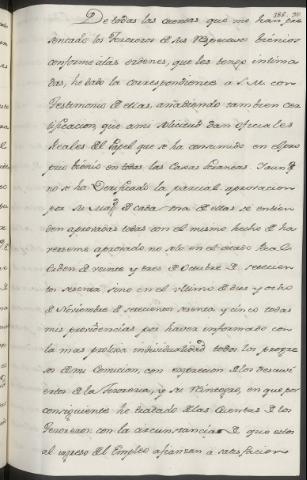 De todas las cuentas que me han pre
sentado los Tesoreros de sus respectivos bienios
conforme a las ordenes, que les tengo intima
das, he dado la correspondiente a S.M. con
Testimonio de ellas, añadiendo tambien cer
tificacion, que a mi solicitud dan oficiales
Reales del Papel que se ha consumido en el pro
pio bienio en todas las Caxas foraneas. Y aunqᵉ
no se ha Verificado la parcial aprovacion
por su Magᵈ de cada una de ellas se entien
den aprovadas todas con el mismo hecho de ha
verseme aprobado no solo en el citado Real
orden de veinte y tres de Octubre de setecien
tos setenta, sino en el ultimo de dies y ocho
de Noviembre de setecientos setenta y cinco todas
mis providencias por haver informado con
la mas prolixa individualidᵈ todos los progre
sos de mi Comision, con expresion de los descuvi
ertos de la Tesoreria, y su Reintegro, en que por
consiguiente he tratado de las Cuentas de los
Tesoreros con la circunstancia de que estos
al ingreso del Empleo afianzan a satisfaccion